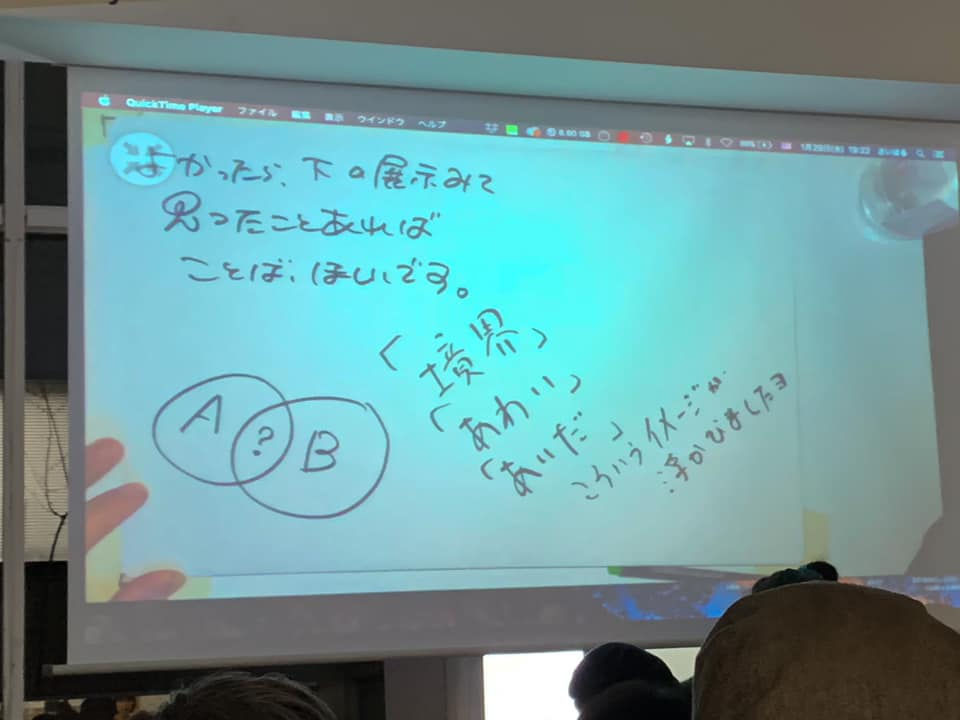 QuickTime Player ファイル 編集 表示 ウインドウ ヘルプ
よかったら、下の展示みて
思ったことあれば
ことば、ほしいです。
(境界)
(あわい)
(あいだ)
こういうイメージが
浮かびましたヨ
A ? B